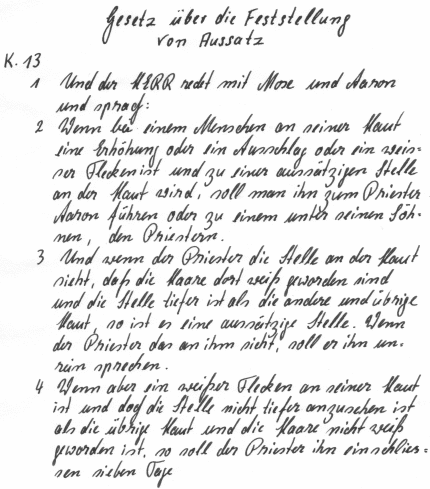 Gesetz über die Feststellung
von Aussatz
K. 13
1 Und der HERR redet mit Mose und Aaron
und sprach:
2 Wenn bei einem Menschen an seiner Haut
eine Erhöhung oder ein Ausschlag oder ein weis=
ser Flecken ist und zu einer aussätzigen Stelle
an der Haut wird, soll man ihn zum Priester
Aaron führen oder zu einem unter seinen Söh=
nen, den Priestern.
3 Und wenn der Priester die Stelle an der Haut
sieht, daß die Haare dort weiß geworden sind
und die Stelle tiefer ist als die andere und übrige
Haut, so ist es eine aussätzige Stelle. Wenn
der Priester das an ihm sieht, soll er ihn un=
rein sprechen.
4 Wenn aber ein weißer Flecken an seiner Haut
ist und doch die Stelle nicht tiefer anzusehen ist
als die übrige Haut und die Haare nicht weiß
geworden ist, so soll der Priester ihn einschlies=
sen sieben Tage